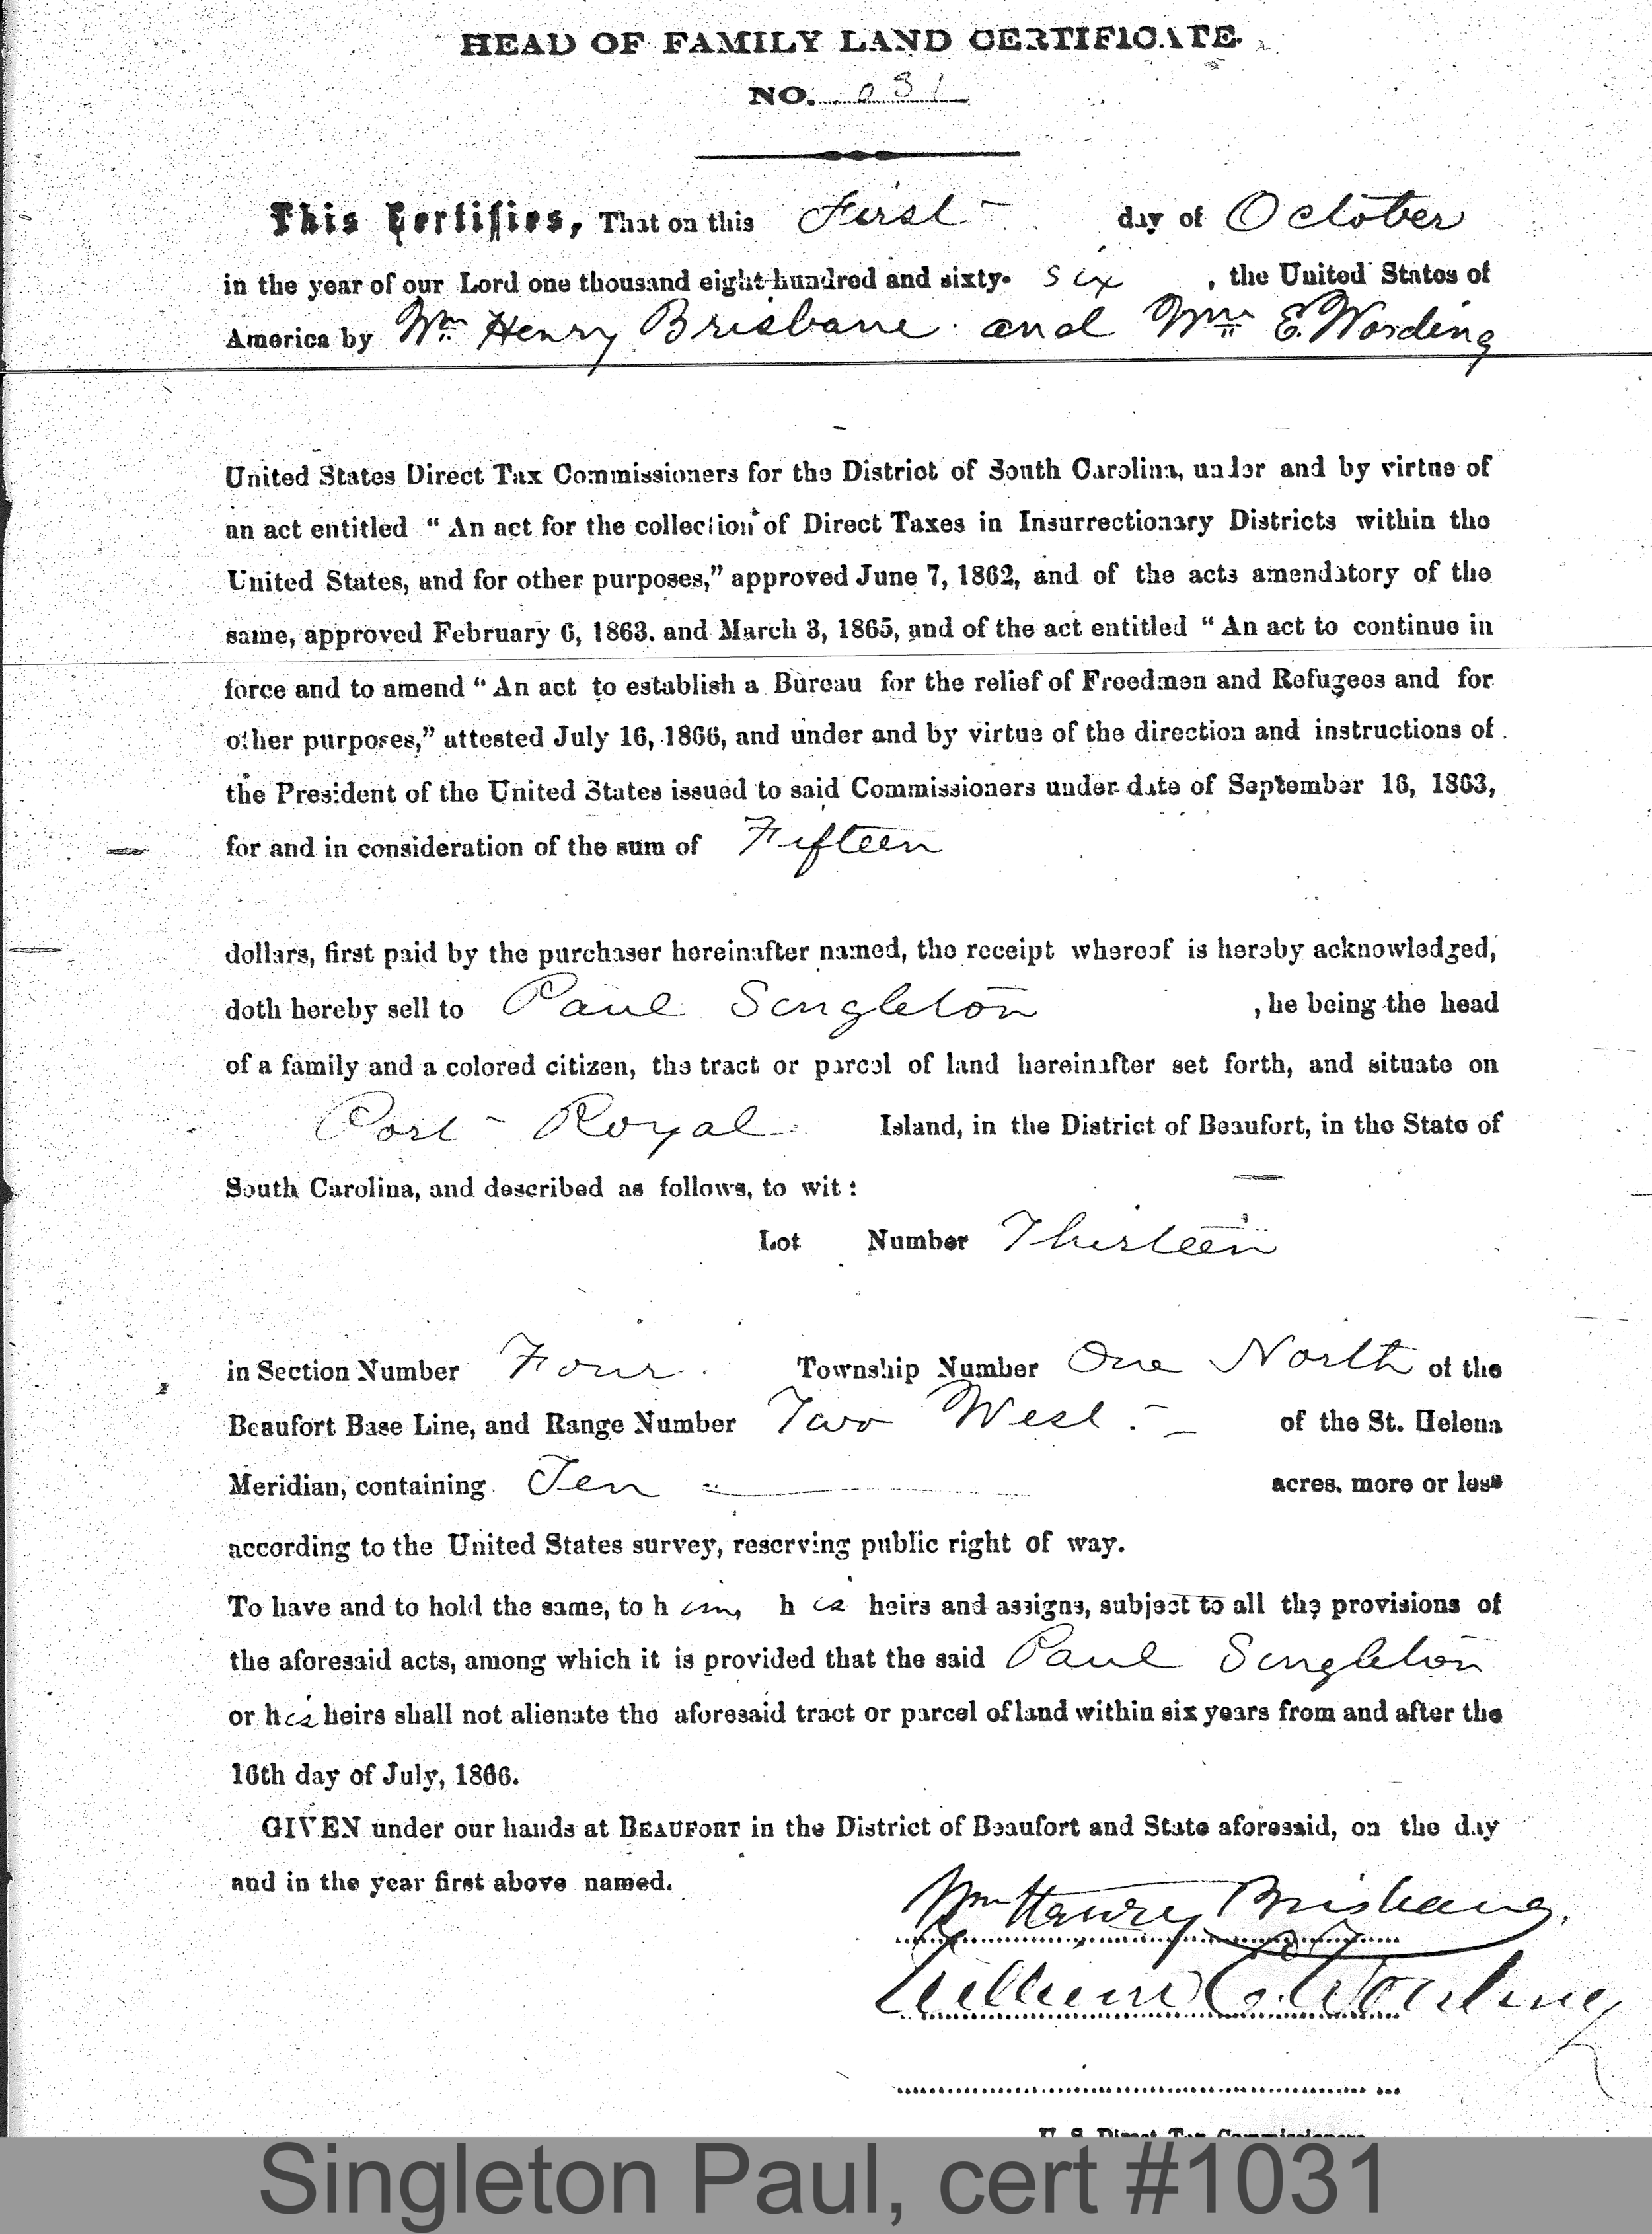 HEAD OF FAMILY LAND CERTIFICATE.
NO. 031
This Certifies, That on this First day of October
in the year of our Lord one thousand eight hundred and sixty- six , the United States of
America by Wm Henry Brisbane and Wm E. Wording
United States Direct Tax Commissioners for the District of South Carolina, under and by virtue of
an act entitled “ An act for the collection of Direct Taxes in Insurrectionary Districts within the
United States, and for other purposes,” approved June 7, 1862, and of the acts amendatory of the
same, approved February 6, 1863. and March 3, 1865, and of the act entitled “ An act to continue in
force and to amend “ An act to establish a Bureau for the relief of Freedmen and Refugees and for
other purposes,” attested July 16, 1866, and under and by virtue of the direction and instructions of
the President of the United States issued to said Commissioners under date of September 16, 1863,
for and in consideration of the sum of Fifteen
dollars, first paid by the purchaser hereinafter named, the receipt whereof is hereby acknowledged,
doth hereby sell to Paul Singleton , he being the head
of a family and a colored citizen, the tract or parcel of land hereinafter set forth, and situate on
Port - Royal Island, in the District of Beaufort, in the State of
South Carolina, and described as follows, to wit :
Lot Number Thirteen
in Section Number Four Township Number One North of the
Beaufort Base Line, and Range Number Two West of the St. Helena
Meridian, containing Ten acres. more or less
according to the United States survey, reserving public right of way.
To have and to hold the same, to him, his heirs and assigns, subject to all the provisions of
the aforesaid acts, among which it is provided that the said Paul Singleton
or his heirs shall not alienate the aforesaid tract or parcel of land within six years from and after the
16th day of July, 1866.
GIVEN under our hands at BEAUFORT in the District of Beaufort and State aforesaid, on the day
and in the year first above named.
Wm Henry Brisbane
William E. Wording
U. S. Direct Tax Commissioners
Singleton Paul, cert #1031